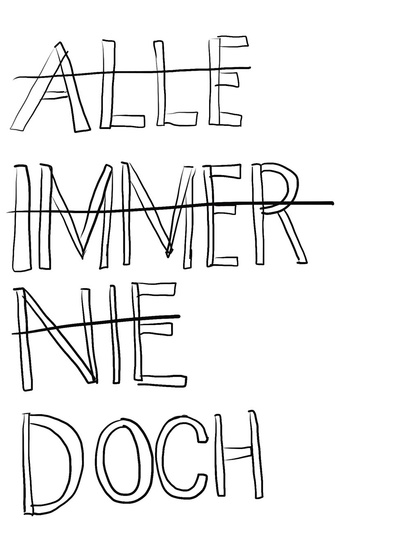 ALLE
IMMER
NIE
DOCH